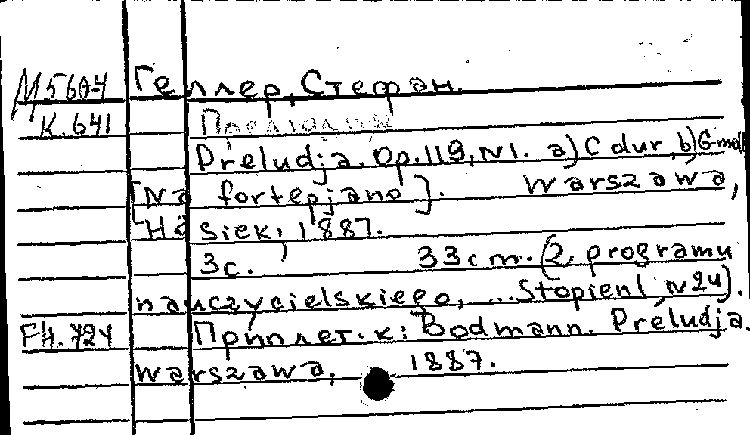 М560-4 Геллер, Стефан.
К.641 Прелюдии
Préludja. Op.119, N1. a) C dur, b) G-moll
[Na fortepjano]. Warszawa,
Hösiek, 1887.
3с. 33cm. (Z programu
nauczycielskiego, ... Stopień I N24).
FH.724 Приплет. к: Bodmann. Préludja.
Warszawa, 1887.